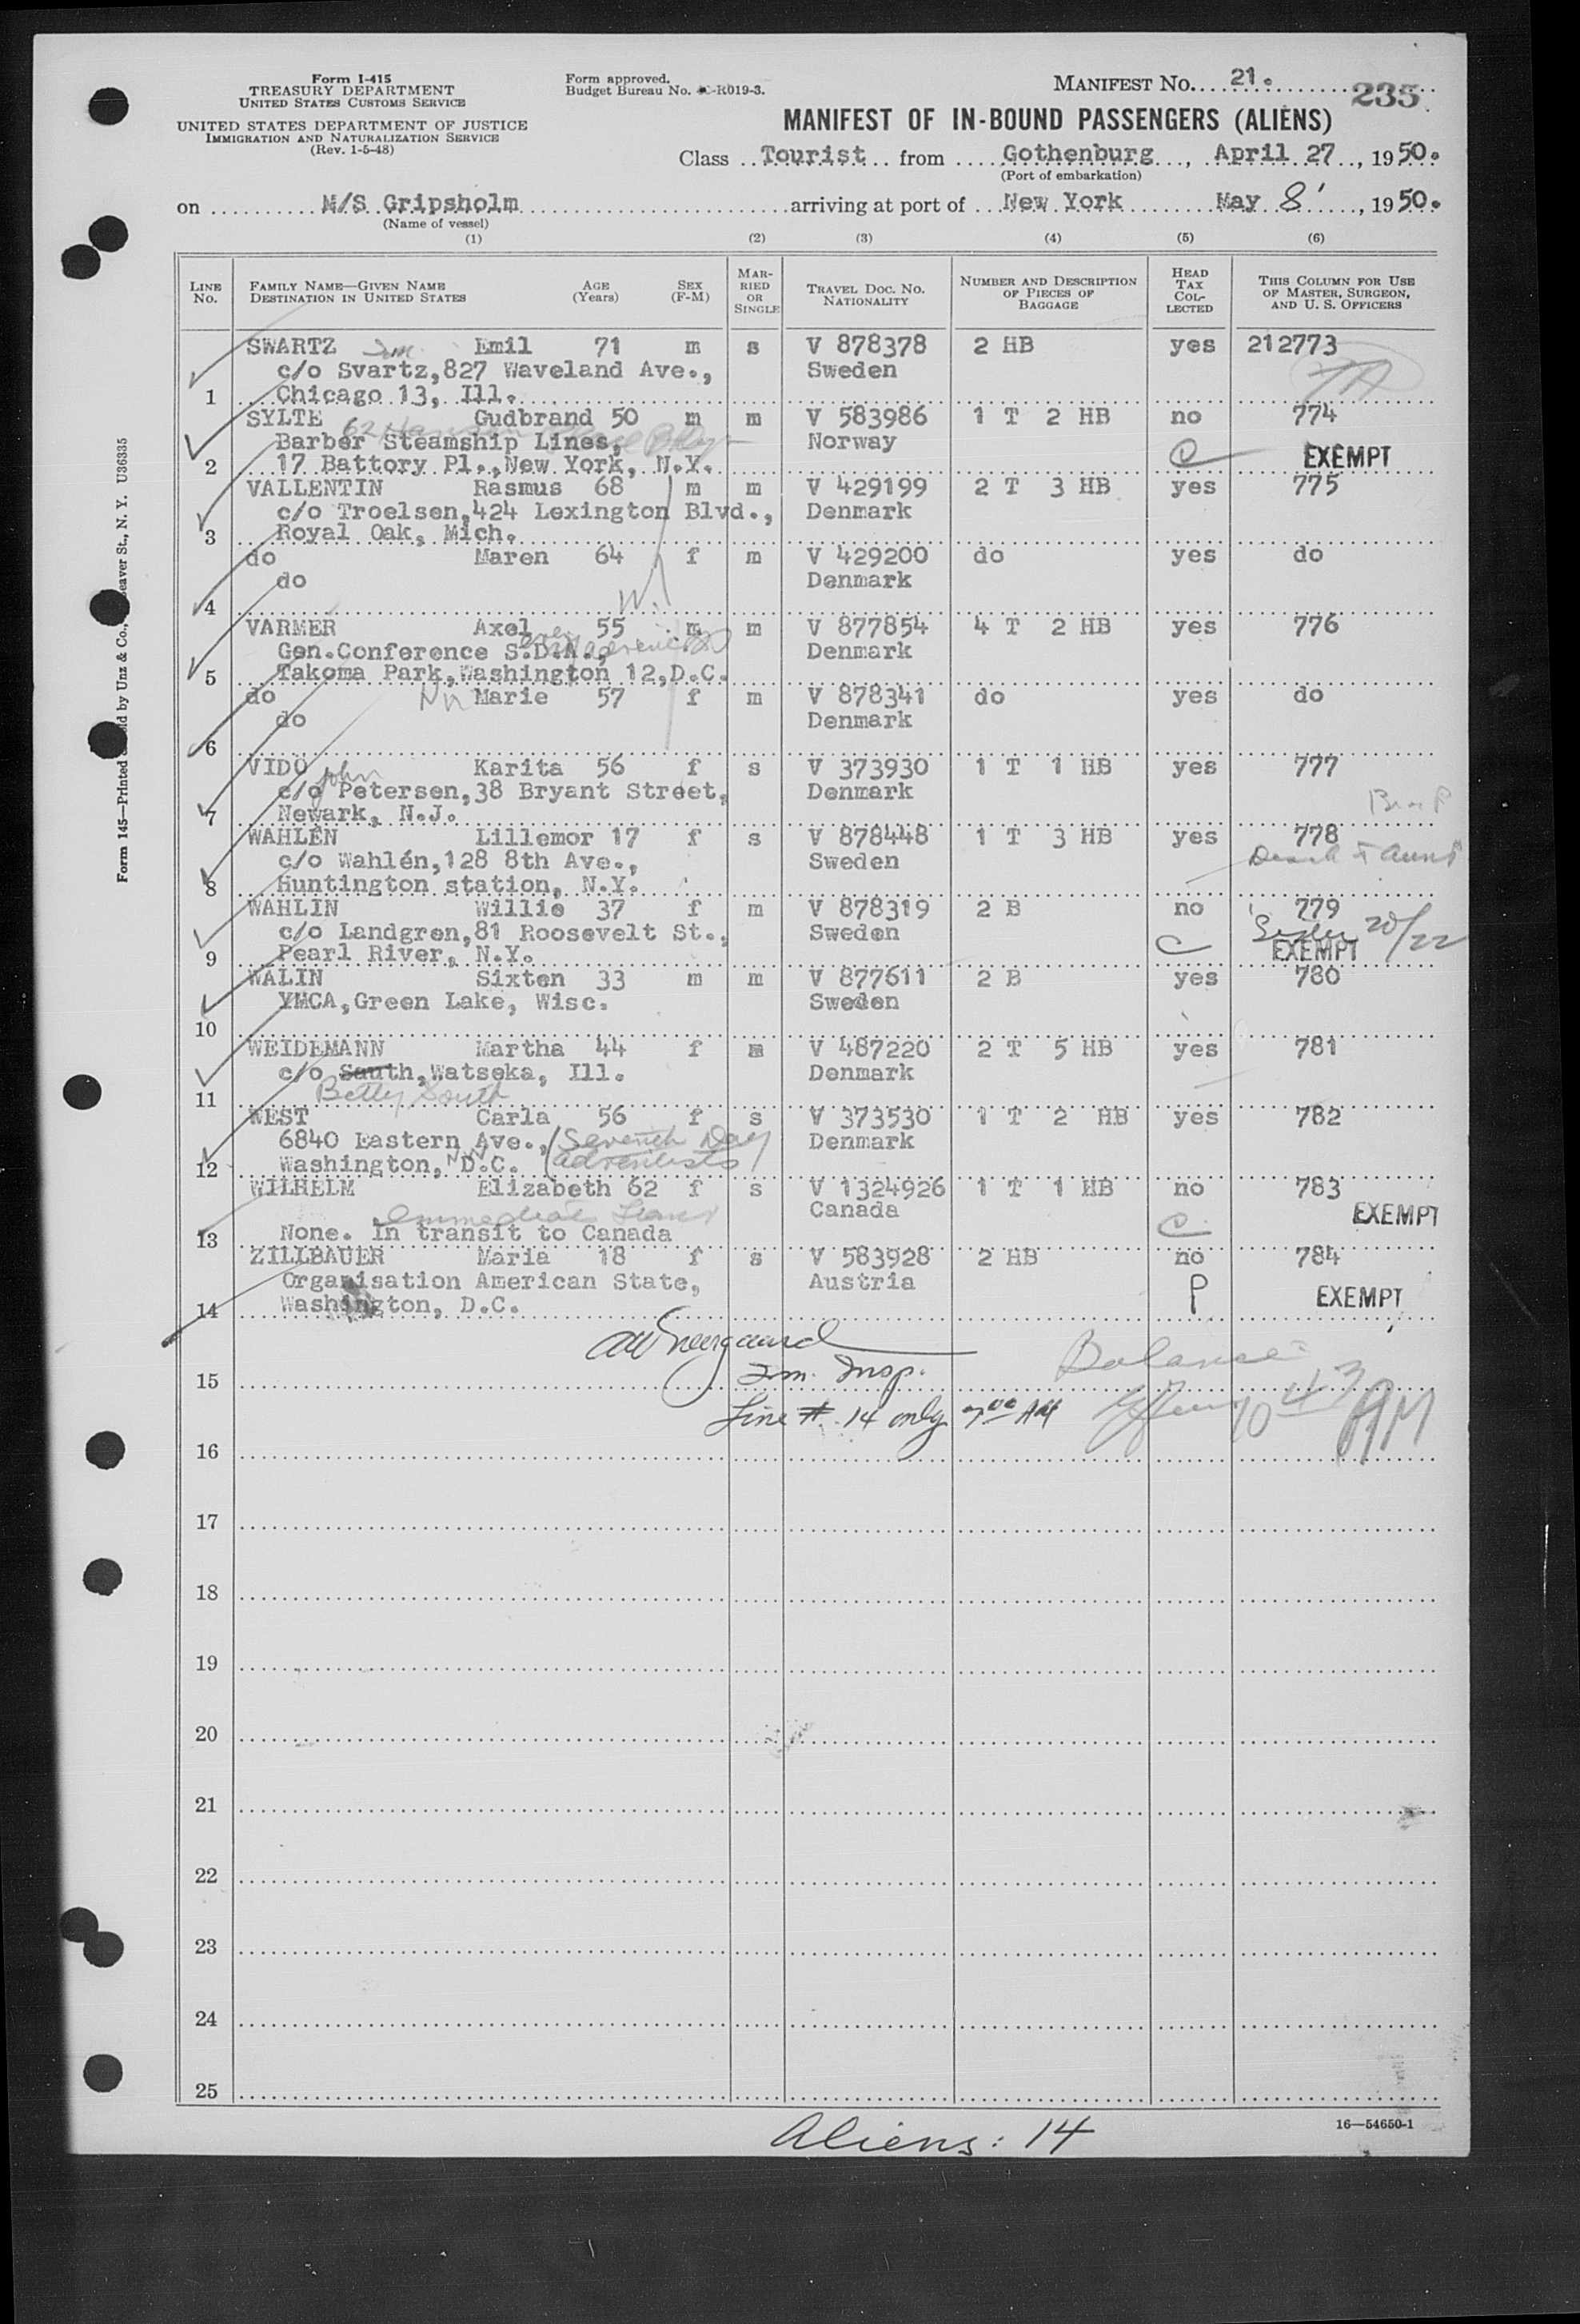 Form I-415
TREASURY DEPARTMENT
UNITED STATES CUSTOMS SERVICE
UNITED STATES DEPARTMENT OF JUSTICE
IMMIGRATION AND NATURALIZATION SERVICE
(Rev. 1-5-48)
Form approved.
Budget Bureau No. -R019-3.
MANIFEST No. 21.
235
MANIFEST OF IN-BOUND PASSENGERS (ALIENS)
Class Tourist from Gothenburg, April 27, 1950.
(Port of embarkation)
on M/S Gripsholm arriving at port of New York May 8, 1950.
(Name of vessel)
(1) (2) (3) (4) (5) (6)
LINE No. FAMILY NAME—GIVEN NAME DESTINATION IN UNITED STATES AGE (Years) SEX (F-M) MARRIED OR SINGLE TRAVEL DOC. NO. NATIONALITY NUMBER AND DESCRIPTION OF PIECES OF BAGGAGE HEAD TAX COLLECTED THIS COLUMN FOR USE OF MASTER, SURGEON, AND U. S. OFFICERS
SWARTZ Emil 71 m s V 878378 2 HB yes 212773
c/o Svartz,827 Waveland Ave., Sweden
1 Chicago 13, Ill.
SYLTE Gudbrand 50 m m V 583986 1 T 2 HB no 774
Barber Steamship Lines, Norway
2 17 Battory Pl.,New York, N.Y. C EXEMPT
VALLENTIN Rasmus 68 m m V 429199 2 T 3 HB yes 775
c/o Troelsen,424 Lexington Blvd., Denmark
3 Royal Oak, Mich.
do Maren 64 f m V 429200 do yes do
do Denmark
4
VARMER Axel 55 m m V 877854 4 T 2 HB yes 776
Gen.Conference S.D.A., Denmark
5 Takoma Park,Washington 12,D.C.
do Marie 57 f m V 878341 do yes do
do Denmark
6
VIDÖ Karita 56 f s V 373930 1 T 1 HB yes 777
John
c/o Petersen,38 Bryant Street, Denmark
7 Newark, N.J.
WAHLÉN Lillemor 17 f s V 878448 1 T 3 HB yes 778
c/o Wahlén,128 8th Ave., Sweden
8 Huntington station, N.Y.
WAHLIN Willie 37 f m V 878319 2 B no 779
c/o Landgren,81 Roosevelt St., Sweden Sister 20/22
9 Pearl River, N.Y. C EXEMPT
WALIN Sixten 33 m m V 877611 2 B yes 780
YMCA,Green Lake, Wisc. Sweden
10
WEIDEMANN Martha 44 f m V 487220 2 T 5 HB yes 781
c/o Sauth,Watseka, Ill. Denmark
11 Betty South
WEST Carla 56 f s V 373530 1 T 2 HB yes 782
6840 Eastern Ave., (Seventh Day Denmark
12 Washington, NW D.C. adventists)
WILHELM Elizabeth 62 f s V 1324926 1 T 1 HB no 783
Immediate Canada EXEMPT
13 None. In transit to Canada C
ZILLBAUER Maria 18 f s V 583928 2 HB no 784
Organisation American State, Austria P EXEMPT
14 Washington, D.C.
Balance
15 Im. Insp.
Line # 14 only 7 00 AM 10 43 AM
16
17
18
19
20
21
22
23
24
25
Aliens: 14
16—54650-1
Form 145—Printed and Sold by Unz & Co., Beaver St., N. Y. U36335